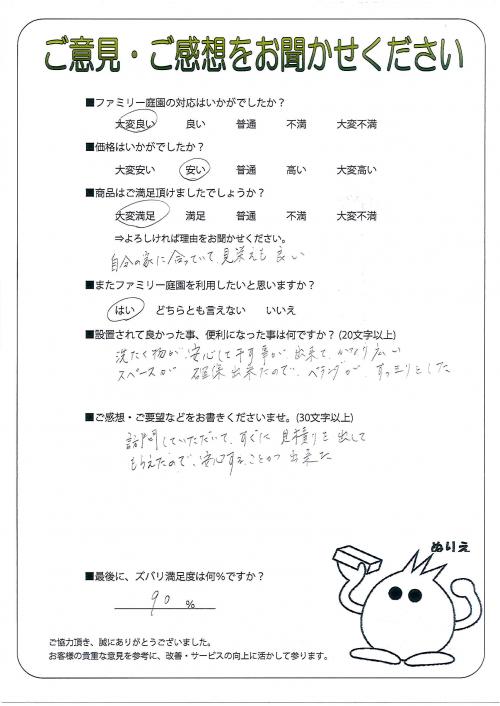 ご意見・ご感想をお聞かせください
■ファミリー庭園の対応はいかがでしたか？
大変良い 良い 普通 不満 大変不満
■価格はいかがでしたか？
大変安い 安い 普通 高い 大変高い
■商品はご満足頂けましたでしょうか？
大変満足 満足 普通 不満 大変不満
⇒よろしければ理由をお聞かせください。
自分の家に合っていて、見栄えも良い
■またファミリー庭園を利用したいと思いますか？
はい どちらとも言えない いいえ
■設置されて良かった事、便利になった事は何ですか？(20文字以上)
洗たく物が、安心して干す事が、出来て、かなり広い
スペースが 確保出来たので、ベランダが、すっきりとした
■ご感想・ご要望などをお書きくださいませ。(30文字以上)
訪門していただいて、すぐに 見積りを出して
もらえたので、安心することが出来た
ぬりえ
■最後に、ズバリ満足度は何%ですか？
90 %
ご協力頂き、誠にありがとうございました。
お客様の貴重な意見を参考に、改善・サービスの向上に活かして参ります。